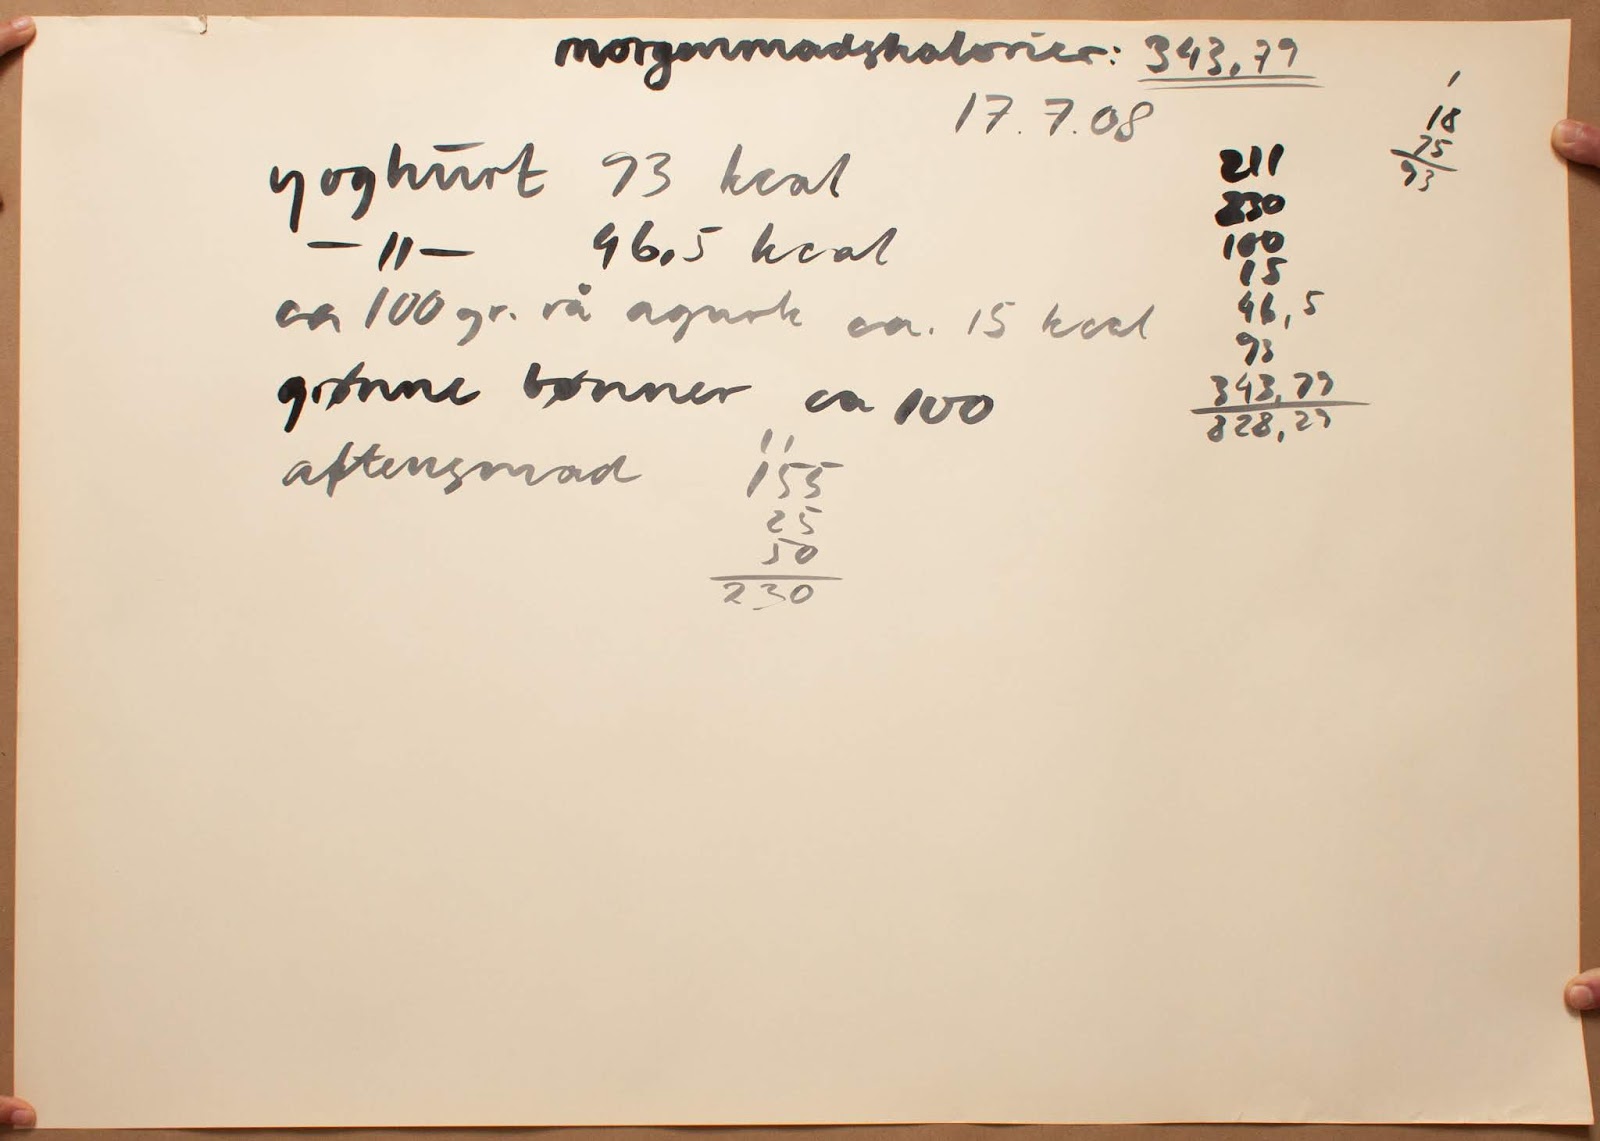 morgenmadskalorier: 343,79
17.7.08
yoghūrt 93 kcal
—11— 46,5 kcal
ca 100 gr. rå agurk ca. 15 kcal
grønne bønner ca 100
aftensmad
11
155
25
50
230
211
230
100
15
46,5
93
343,79
828,29
1
18
75
93